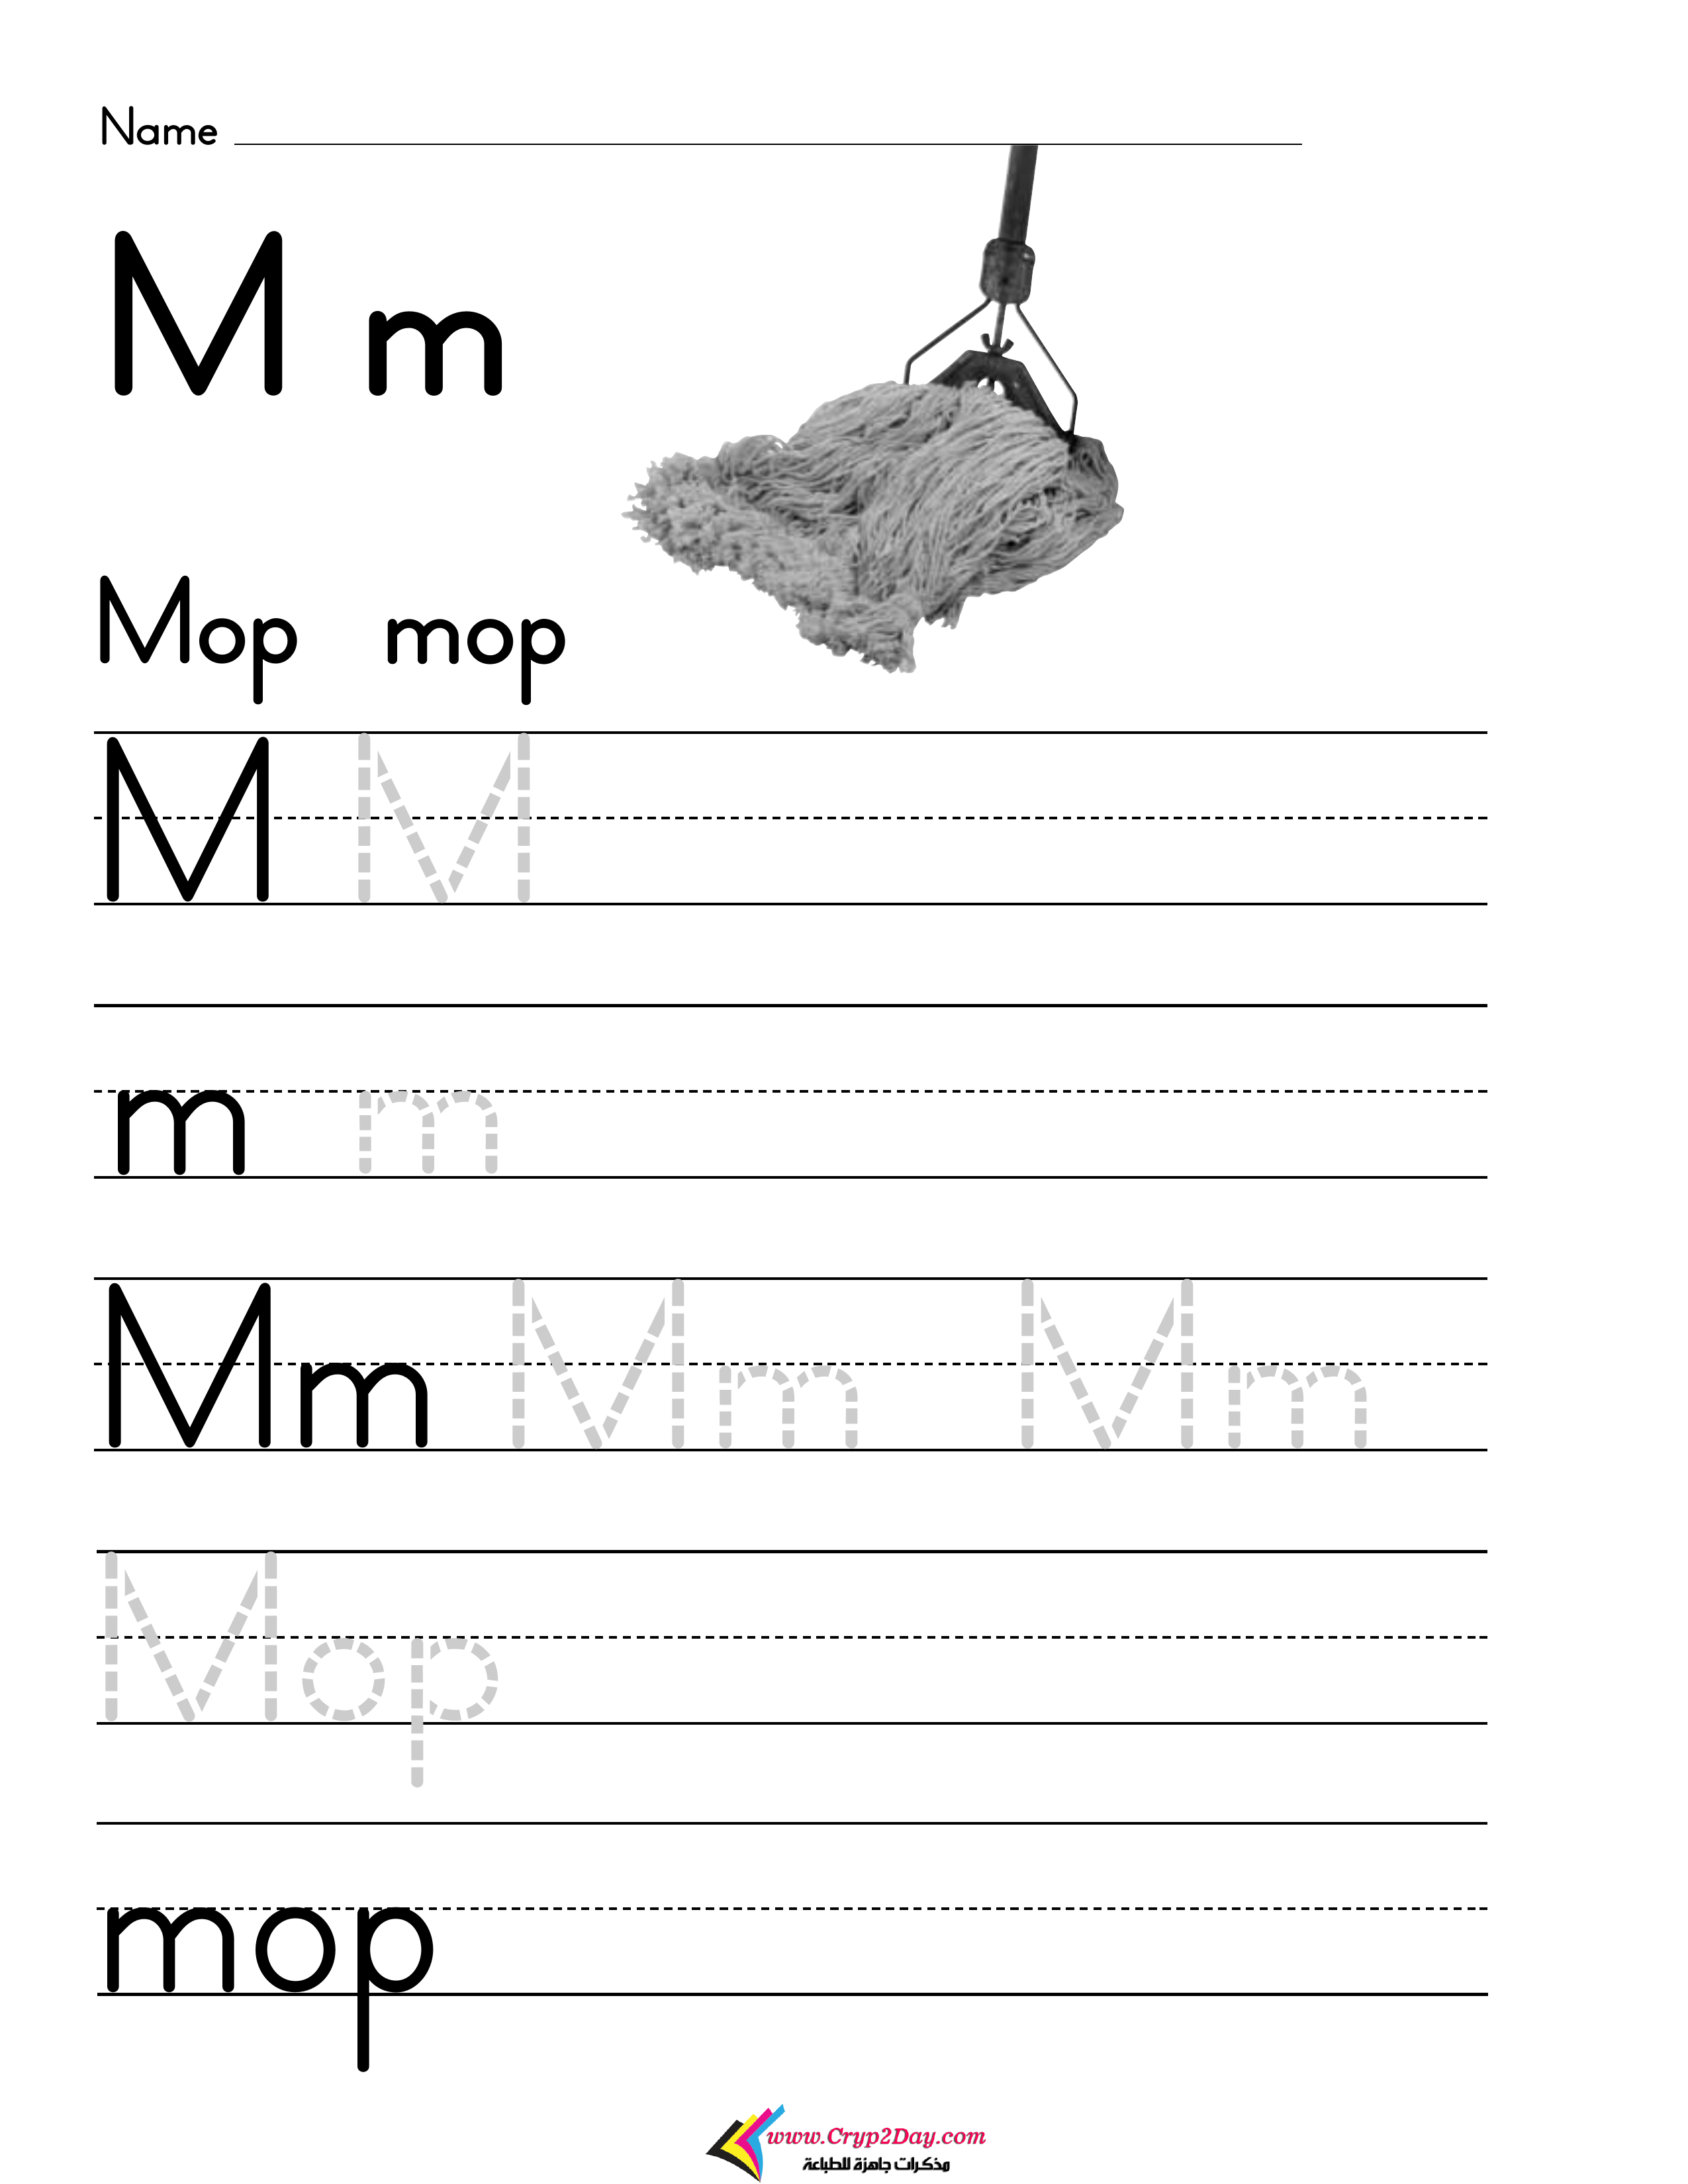 Name
M m
Mop mop
M M
m m
Mm Mm Mm
Mop
mop
www.Cryp2Day.com
مذكرات جاهزة للطباعة